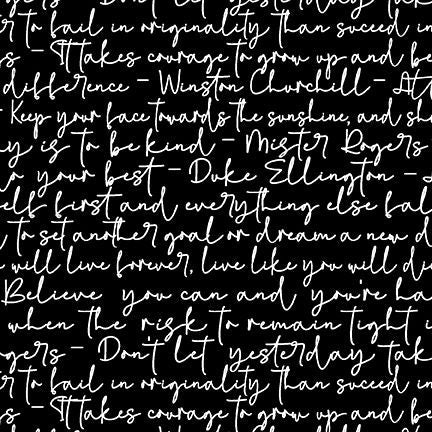 let yesterday
r to fail in originality than suceed in
s - It takes courage to grow up and be
difference - Winston Churchill - Att
- Keep your face towards the sunshine, and sh
y is to be kind - Mister Rogers
your best - Duke Ellington -
elf first and everything else fal
to set another goal or dream a new d
will live forever, live like you will di
Believe you can and you're ha
when the risk to remain tight i
gers - Don't let yesterday tak
r to fail in originality than suceed in
s - It takes courage to grow up and be